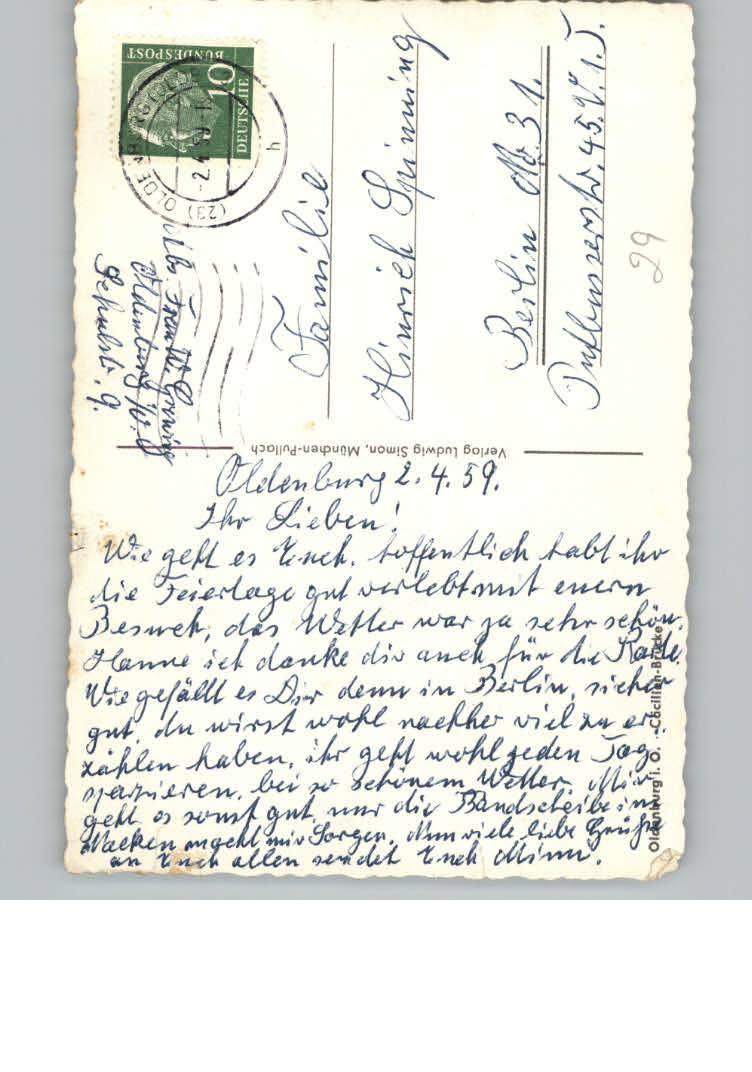 DEUTSCHE
BUNDESPOST
10
(23) OLDENBURG
-2.4.59
h
Abs Frau W. Grening
Oldenburg i/O
Schulstr. 9.
Familie
Hinrich Spinning
Berlin No. 31.
Putbusserstr. 45. V. 1. T.
29
Verlag Ludwig Simon, München-Pullach
Oldenburg 2.4.59.
Ihr Lieben!
Wie geht es Euch. hoffentlich habt ihr
die Feiertage gut verlebt mit euern
Besuch, das Wetter war ja sehr schön.
Hanne ich danke dir auch für die Karte.
Wie gefällt es Dir denn in Berlin, sicher
gut, du wirst wohl nachher viel zu er-
zählen haben, ihr geht wohl jeden Tag
spazieren, bei so schönem Wetter. Mir
geht es sonst gut, nur die Bandscheibe im
Nacken macht mir Sorgen. Nun viele liebe Grüße
an Euch allen sendet Euch Minni.
Oldenburg i. O. - Cäcilien-Brücke